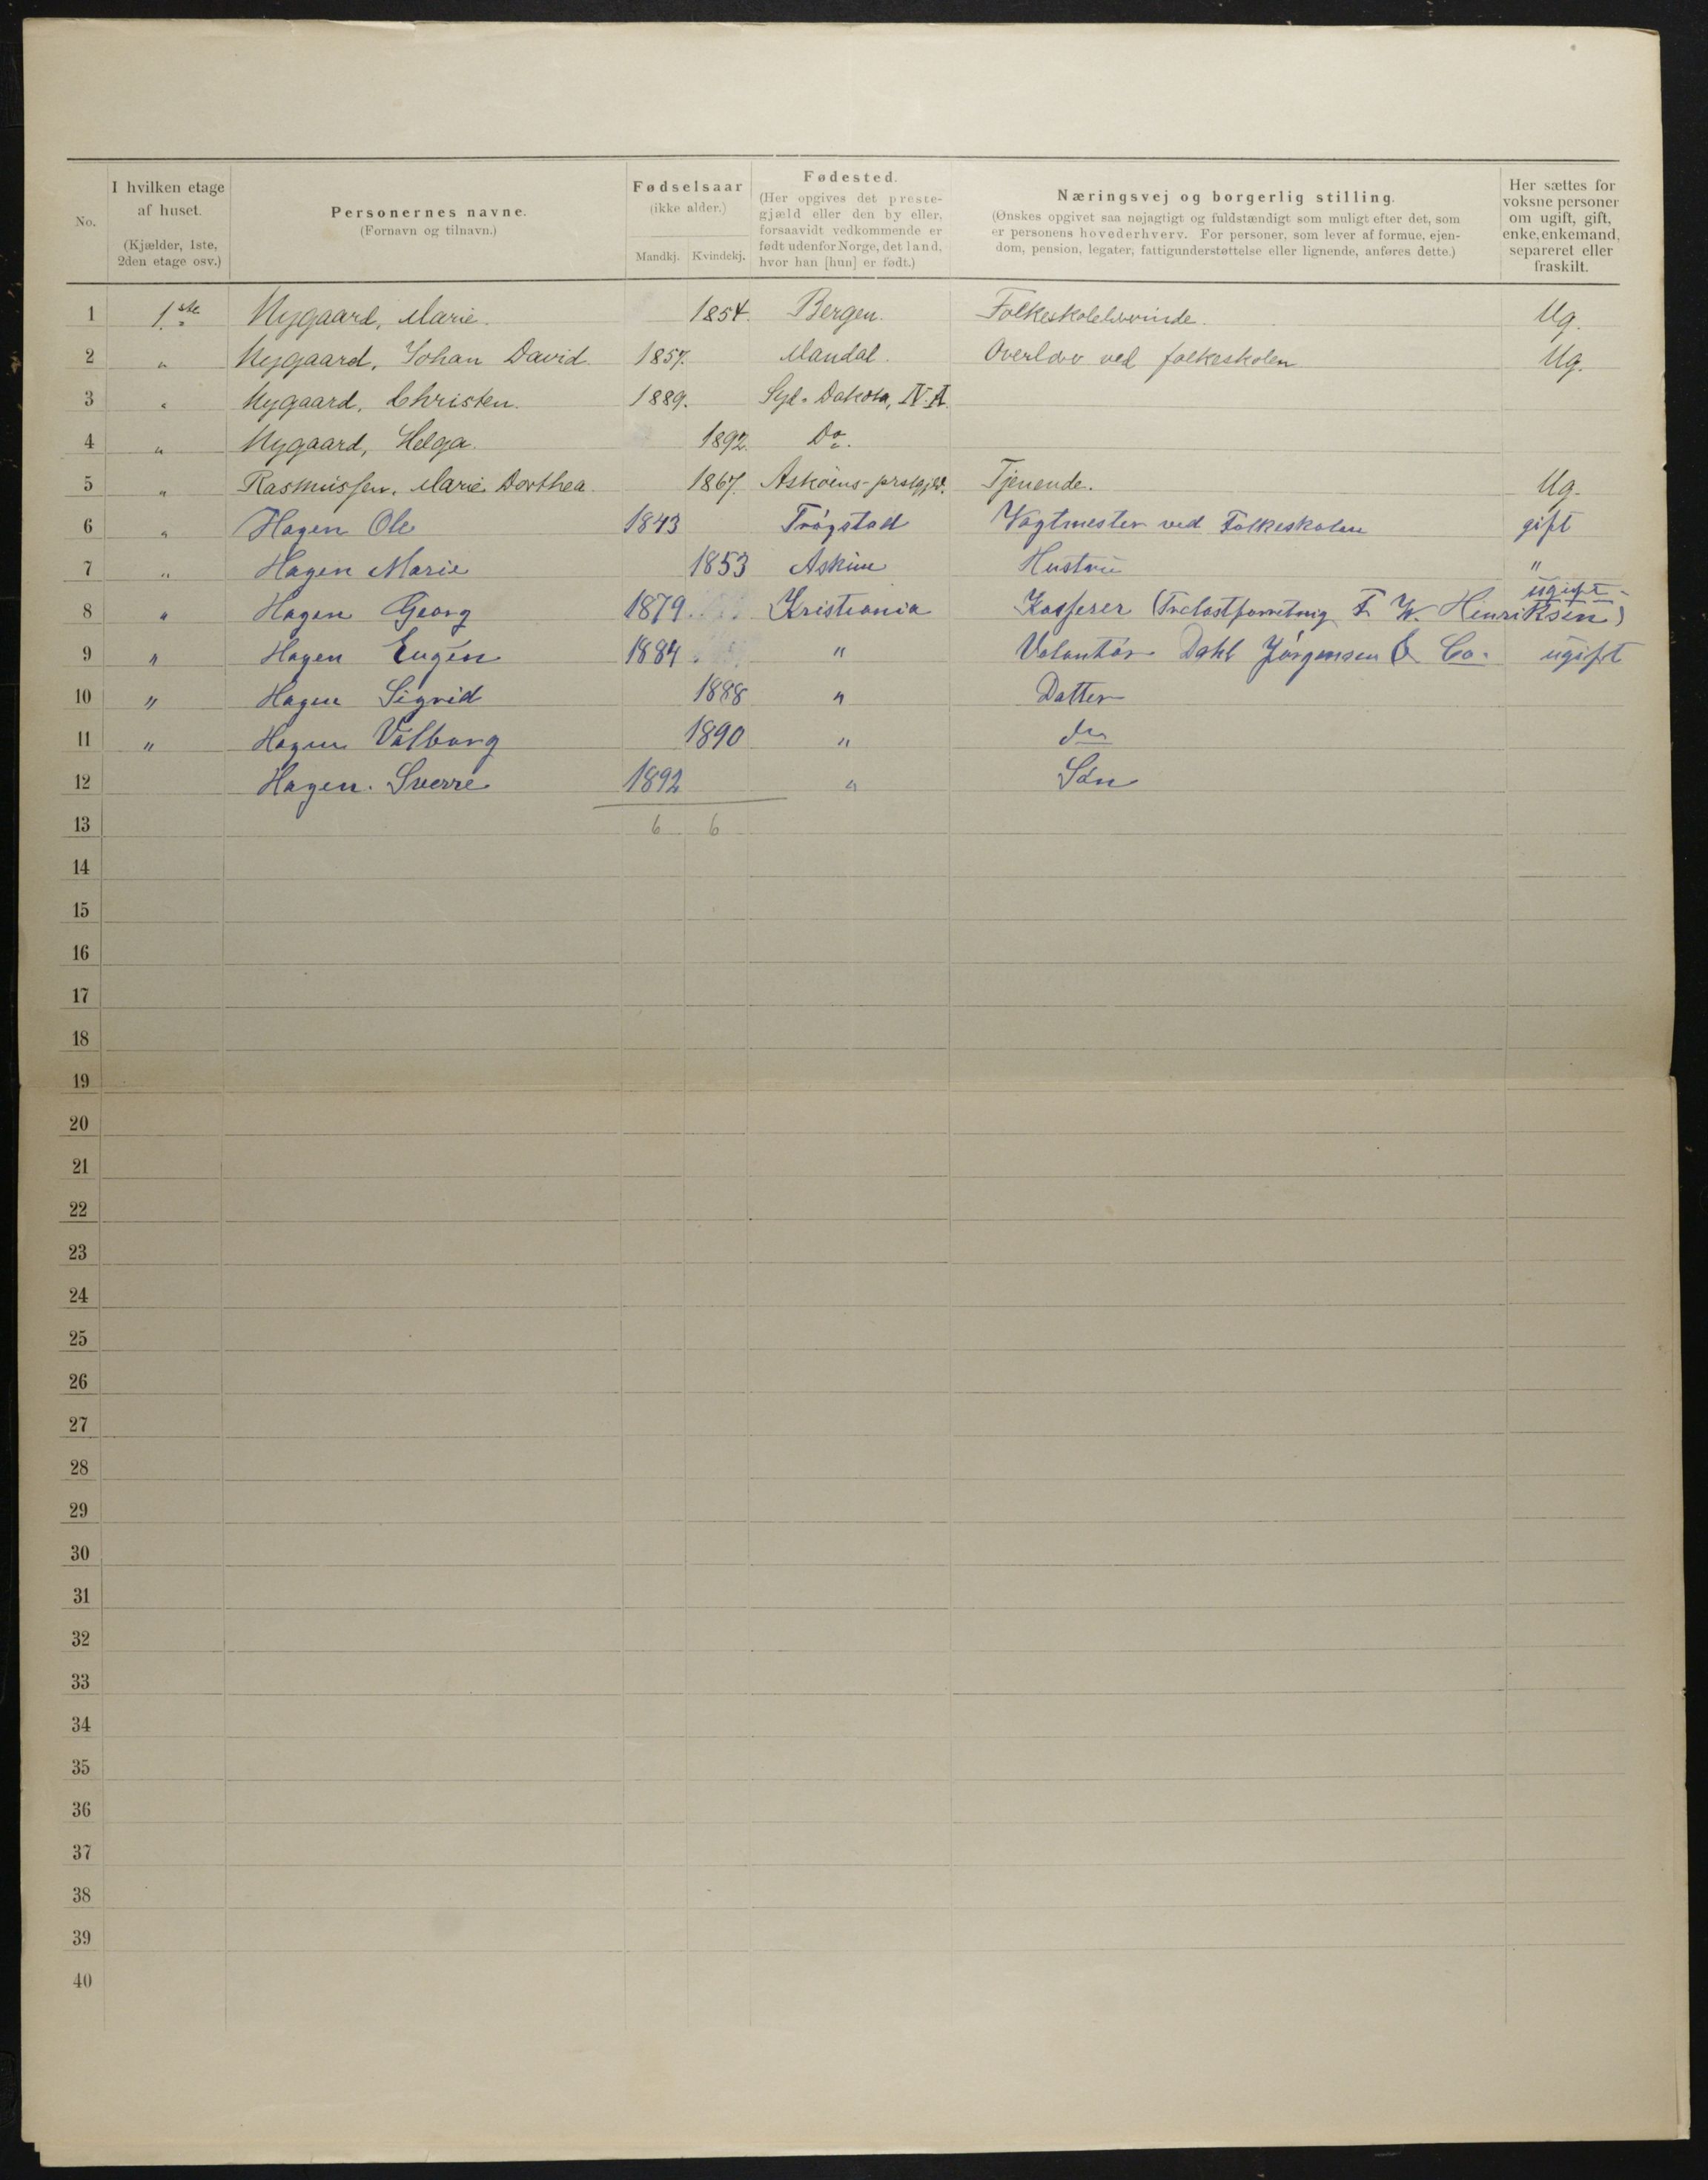 No.
I hvilken etage af huset. (Kjælder, 1ste, 2den etage osv.)
Personernes navne. (Fornavn og tilnavn.)
Fødselsaar (ikke alder.)
Mandkj. Kvindekj.
Fødested. (Her opgives det prestegjæld eller den by eller, forsaavidt vedkommende er født udenfor Norge, det land, hvor han [hun] er født.)
Næringsvej og borgerlig stilling. (Ønskes opgivet saa nøjagtigt og fuldstændigt som muligt efter det, som er personens hovederhverv. For personer, som lever af formue, ejendom, pension, legater, fattigunderstøttelse eller lignende, anføres dette.)
Her sættes for voksne personer om ugift, gift, enke, enkemand, separeret eller fraskilt.
1 1ste Nygaard, Marie. 1854. Bergen. Folkeskolelærerinde. Ug.
2 " Nygaard, Johan David. 1857. Mandal. Overlærer ved folkeskolen Ug.
3 " Nygaard, Christen. 1889. Dakota, N. A.
4 " Nygaard, Helga. 1892. Do.
5 " Rasmussen, Marie Dorthea. 1867. Askøens prstgjld. Tjenende. Ug.
6 " Hagen Ole 1843 Trøgstad Vagtmester ved Folkeskolen gift
7 " Hagen Marie 1853 Askim Hustru "
8 " Hagen Georg 1879 Kristiania Kasserer (Trelastforretning F. W. Henriksen) ugift
9 " Hagen Eugén 1884 " Volontør Dahl Jørgensen & Co. ugift
10 " Hagen Sigrid 1888 " Datter
11 " Hagen Valborg 1890 " do
12 Hagen. Sverre 1892 " Søn
13 6 6
14
15
16
17
18
19
20
21
22
23
24
25
26
27
28
29
30
31
32
33
34
35
36
37
38
39
40